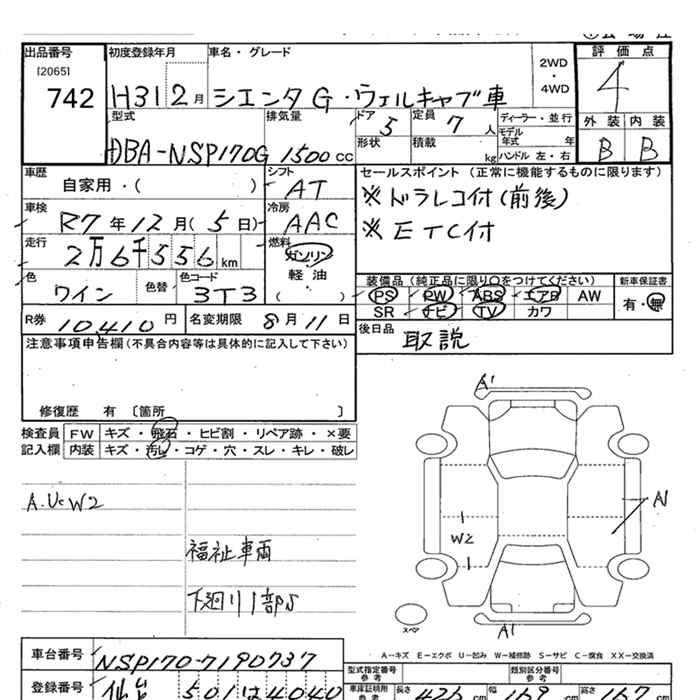 出品番号 初度登録年月 車名・グレード 評価点
[2065]
742 H31 2月 シエンタG・ウェルキャブ車 2WD・4WD 4
型式 排気量 ドア 5 定員 7人 ディーラー・並行 外装 内装
DBA-NSP170G 1500cc 形状 積載 kg モデル年式 年 ハンドル 左・右 B B
車歴 自家用・( ) シフト AT セールスポイント (正常に機能するものに限ります)
※ドラレコ付(前後)
車検 R7年12月(5日) 冷房 AAC ※ETC付
走行 2万6千556km 燃料 ガソリン
軽油
( )
色 ワイン 色替 色コード 3T3 装備品 (純正品に限り○をつけてください) 新車保証書
PS PW ABS エアB AW 有・無
SR ナビ TV カワ
R券 10,410円 名変期限 8月11日 後日品 取説
注意事項申告欄(不具合内容等は具体的に記入して下さい)
修復歴 有 〔箇所 〕
検査員 FW キズ・飛石・ヒビ割・リペア跡・×要
記入欄 内装 キズ・汚れ・コゲ・穴・スレ・キレ・破レ
A'
A.U.W2 A1
W2
福祉車両
下廻り1部S
スペア A1
A-キズ E-エクボ U-凹み W-補修跡 S-サビ C-腐食 XX-交換済
車台番号 NSP170-7190737 型式指定番号 参考 類別区分番号 参考
登録番号 仙台 501は4040 車庫証明用 参考 長さ 423cm 幅 169cm 高さ 167cm